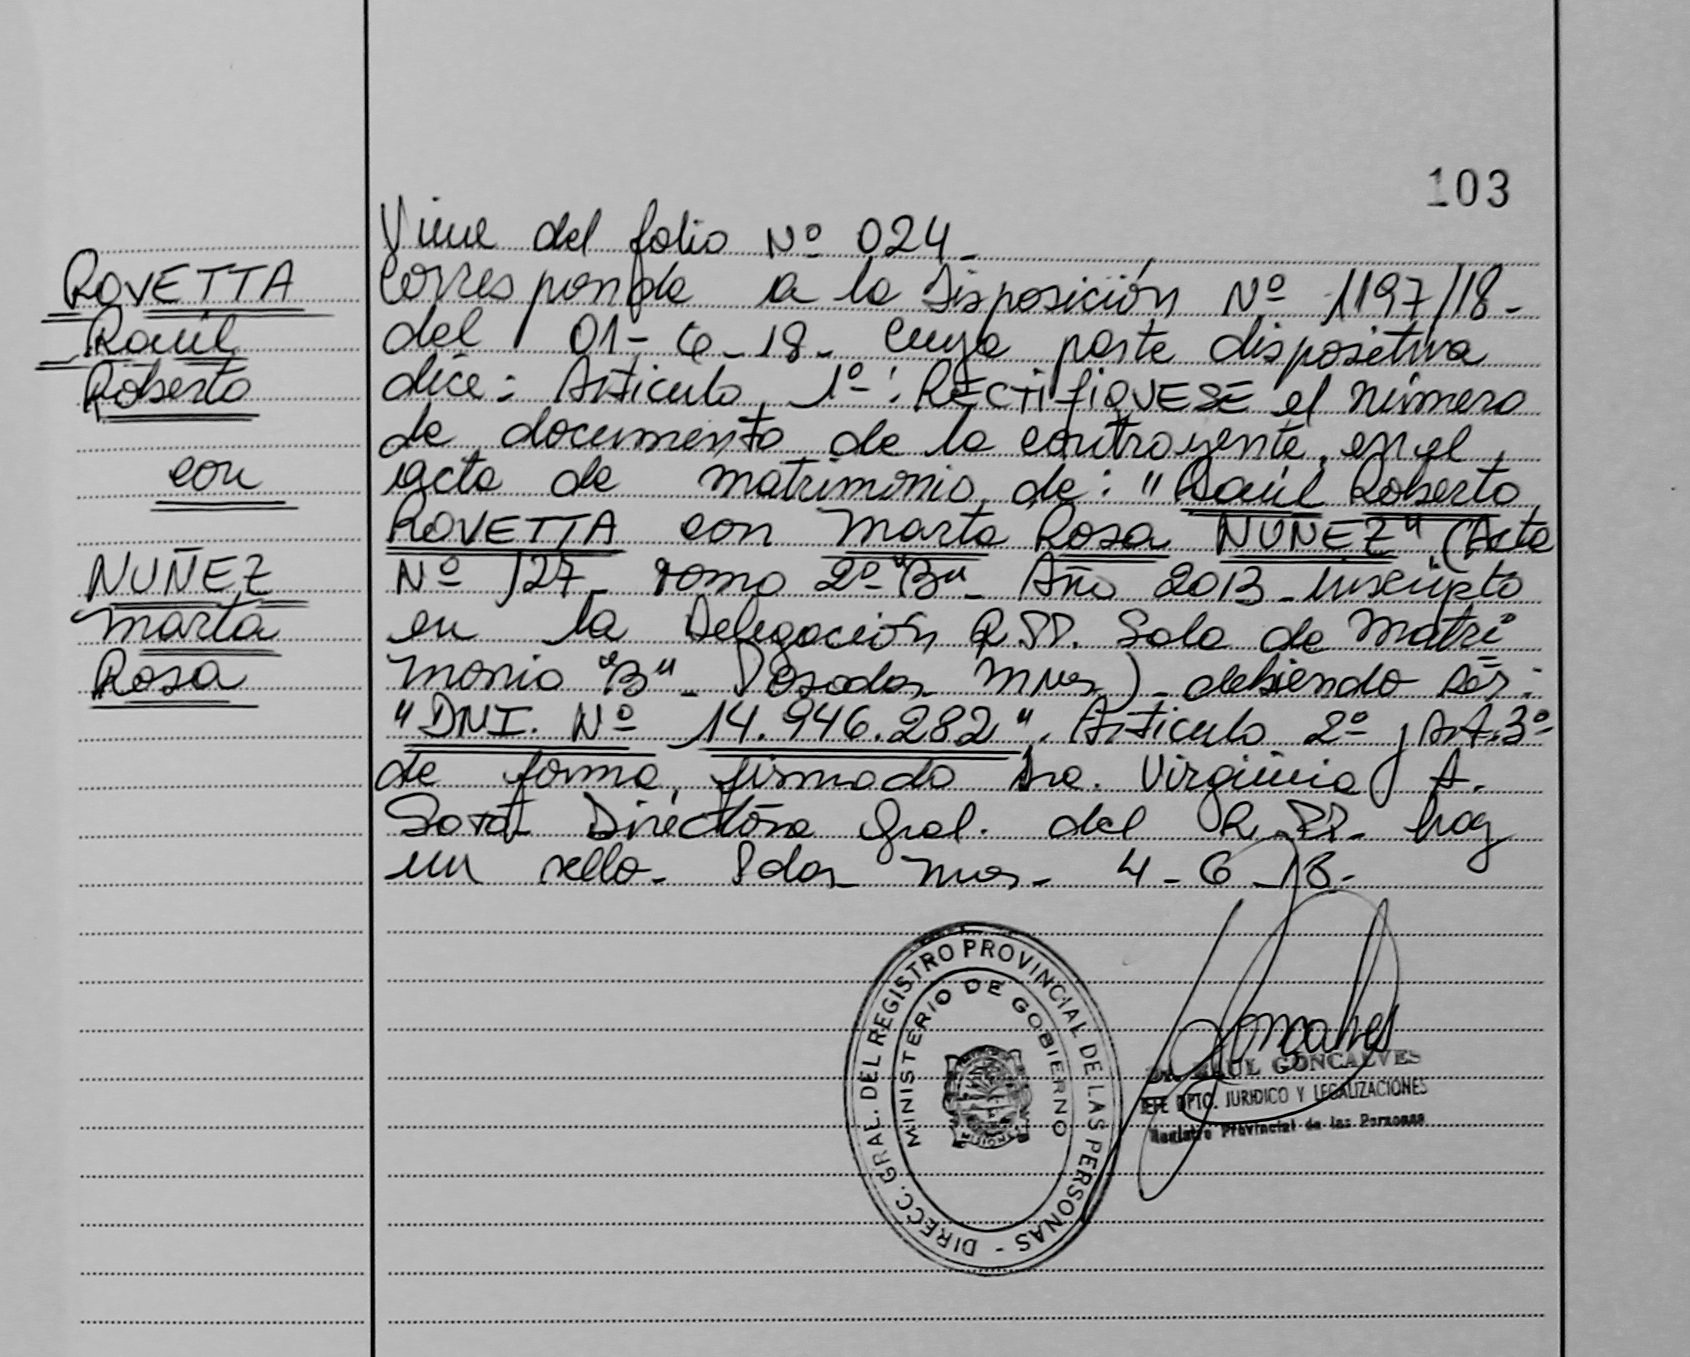 103
ROVETTA
Raúl
Roberto
con
NUÑEZ
Marta
Rosa
Viene del folio Nº 024-
Corresponde a la Disposición Nº 1197/18-
del 01-6-18- cuya parte dispositiva
dice: Articulo 1º: RECTIFIQUESE el número
de documento de la contrayente, en el
acta de matrimonio de: "Raúl Roberto
ROVETTA con Marta Rosa NUÑEZ" (Acta
Nº 127- Tomo 2º "B"- Año 2013- Inscripto
en la Delegación R.PP. Sala de Matri
monio "B"- Posadas Mnes)- debiendo ser:
"DNI. Nº 14.946.282". Articulo 2º y Art.3º-
de forma, firmado Dra. Virginia A.
Directora Gral. del R.PP- hay
un sello- Pdas Mnes- 4-6-18-
DIRECC. GRAL. DEL REGISTRO PROVINCIAL DE LAS PERSONAS -
MINISTERIO DE GOBIERNO
MISIONES
Goncalves
RAUL GONCALVES
JEFE DPTO. JURIDICO Y LEGALIZACIONES
Registro Provincial de las Personas